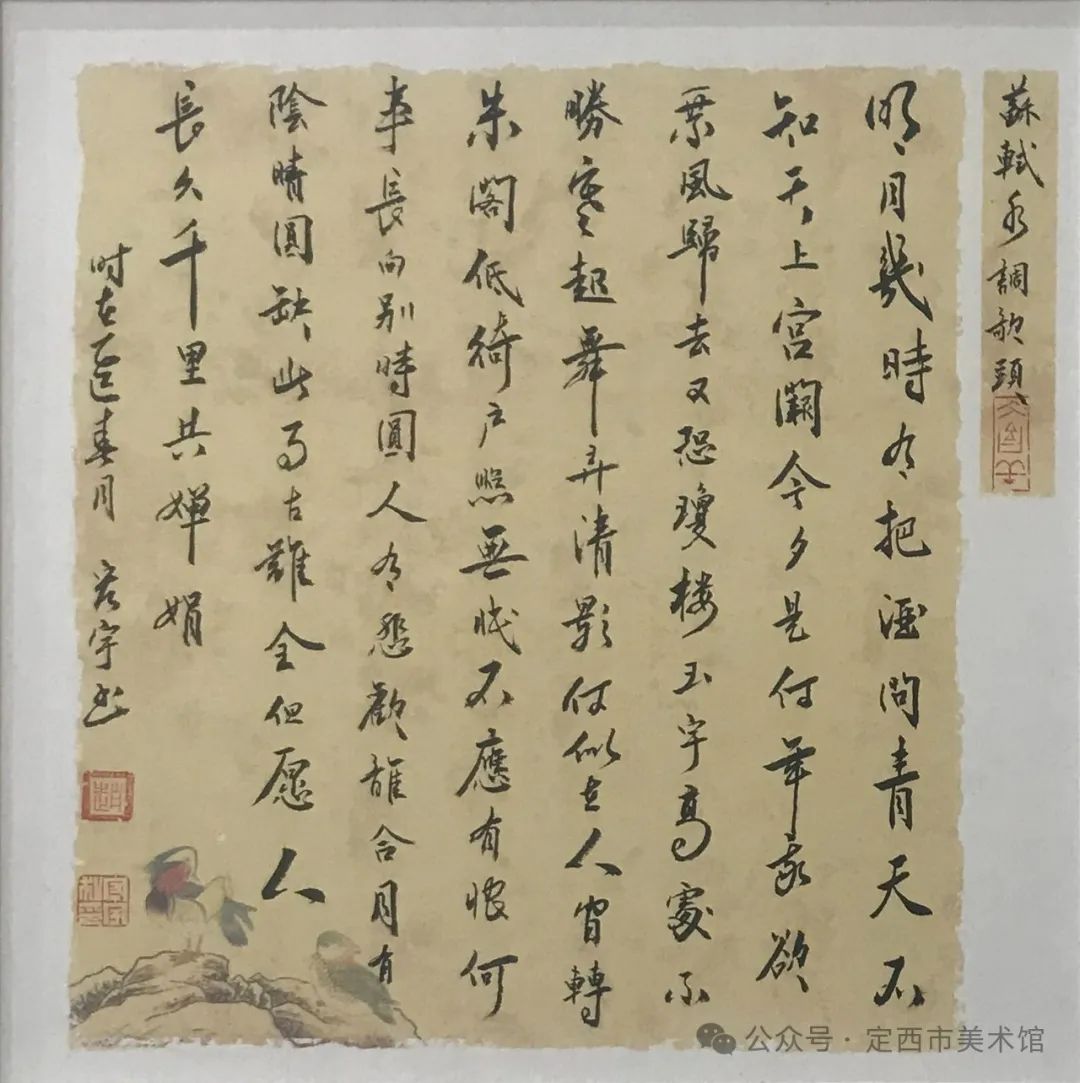 蘇軾水調歌頭
明月幾時有把酒問青天不
知天上宮闕今夕是何年我欲
乘風歸去又恐瓊楼玉宇高處不
勝寒起舞弄清影何似在人間轉
朱閣低綺户照無眠不應有恨何
事長向别時圓人有悲歡離合月有
陰晴圓缺此事古難全但愿人
長久千里共嬋娟
时在春月 宇书
公众号·定西市美术馆